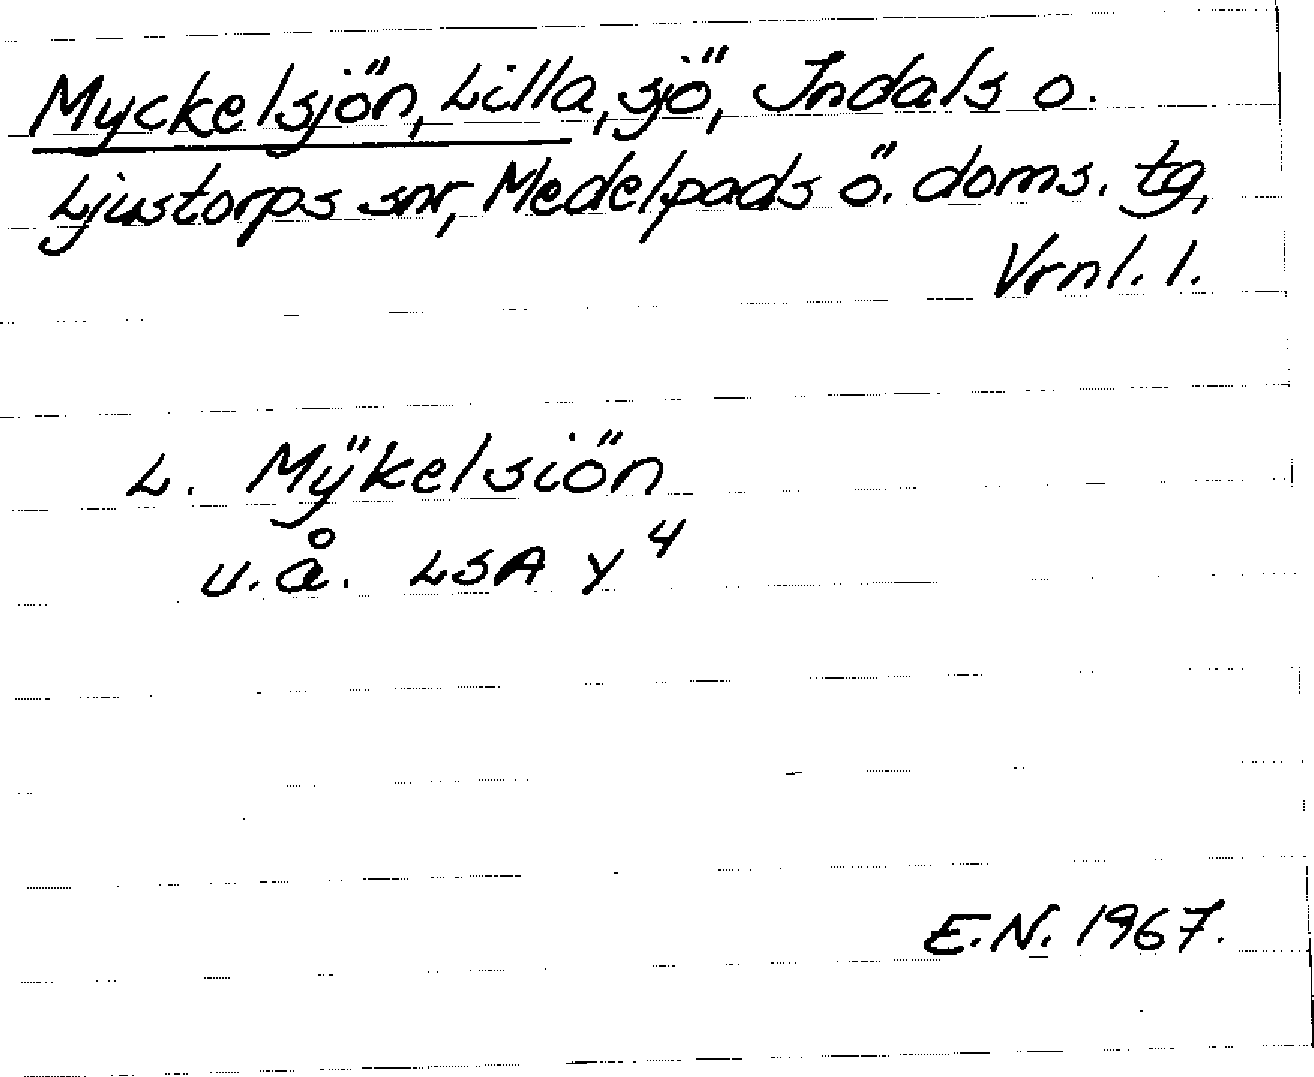 Myckelsjön, Lilla, sjö, Indals o.
Ljustorps snr, Medelpads ö. doms. tg,
Vrnl. l.
L. Mÿkelsiön
u.å. LSA Y 4
E.N. 1967.